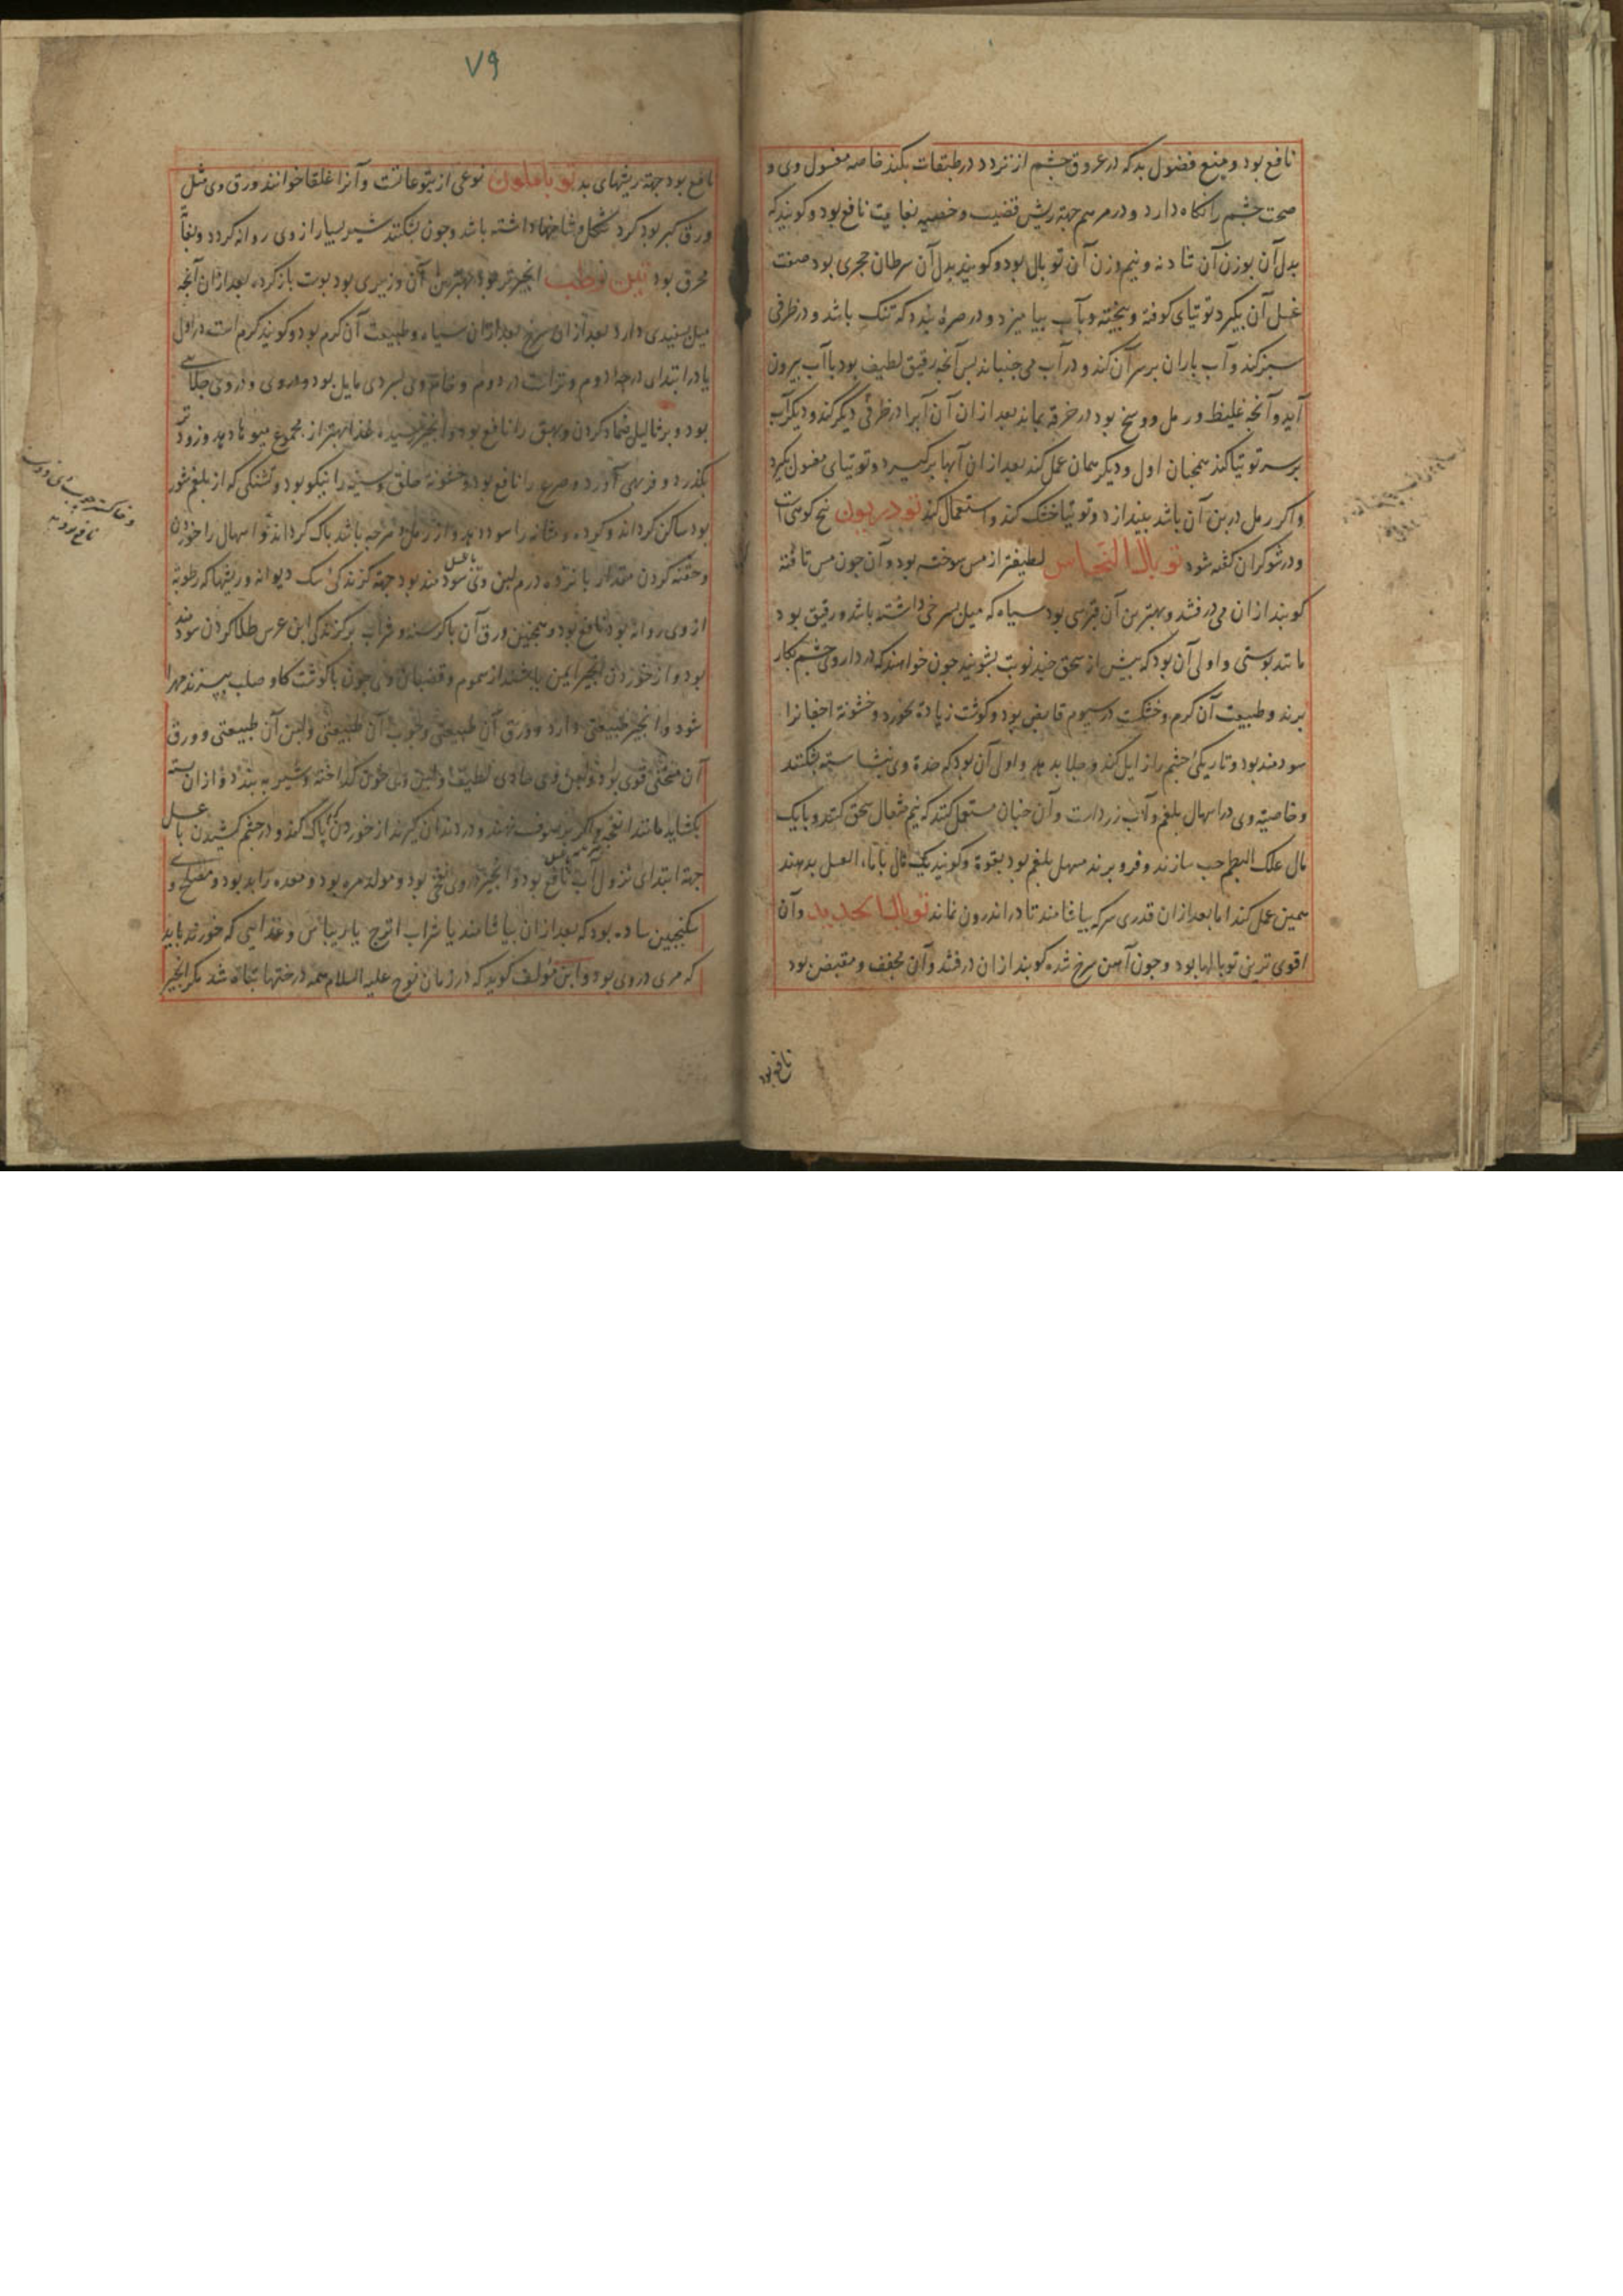 نافع بود و منع فضول بد که در عروق چشم از نزدد در طبقات بکند خاصه مغسول وی و
صحت چشم را نگاه دارد و در مرهم جهة ریش قضیب و خصیه بغایت نافع بود و گویند که
بدل آن بوزن آن شادنه و نیم وزن آن توبال بود و گویند بدل آن سرطان حجری بود صفت
غسل آن بگیرد توتیای کوفته و بیخته و بآب بیامیزد و در صره بندد که تنک باشد و در ظرفی
سبز کند و آب باران بر سر آن کند و در آب می جنباند بس آنچه رقیق لطیف بود با آب بیرون
آید و آنچه غلیظ و رمل و وسخ بود در خرقه بماند بعد از آن آن آبرا در ظرفی دیگر کند و دیگر آب
بر سر توتیا کند همچنان اول و دیگر همان عمل کند بعد از آن آبها برگیرد و توتیای مغسول بگیرد
و اگر رمل در بن آن باشد بیندازد و توتیا خشک کند و استعمال کند تودریون بیخ کوهی است
و در شوکران گفته شود توبال النحاس لطیفتر از مس سوخته بود و آن چون مس تافته
کوبند از آن می درفشد و بهترین آن قبرسی بود سیاه که میل بسرخی داشته باشد و رقیق بود
مانند بوستی و اولی آن بود که بیش از سحق چند نوبت بشویند چون خواهند که در داروی چشم بکار
برند و طبیعت آن گرم و خشکست در سیوم قابض بود و گوشت زیاده بخورد و خشونة اجفانرا
سودمند بود و تاریکی چشم را زایل کند و جلا بدهد و اول آن بود که حدة وی بنشاسته بشکنند
و خاصیة وی در اسهال بلغم و آب زرد است و آن چنان مستعمل کنند که نیم مثقال سحق کنند و با یک
مال علک البطم حب سازند و فرو برند مسهل بلغم بود بقوة و گویند یک مال با ماء العسل بدهند
همین عمل کند اما بعد از آن قدری سرکه بیاشامند تا در اندرون نماند توبال الحدید و آن
اقوی ترین توبالها بود و چون آهن سرخ شده کوبند از آن درفشد و آن مجفف و مقبض بود
نافع بود
٧٩
نافع بود جهة ریشهای بد نوعی از یتوعاتست و آنرا غلقا خوانند ورق وی مثل
ورق کبر بود گرد شکل و شاخها داشته باشد و چون بشکنند شیر بسیار از وی روانه گردد و
محرق بود تین رطب انجیر تر بود بهترین آن وزیری بود بوست باز کرده بعد از آن آنچه
میل بسفیدی دارد بعد از آن سرخ بعد از آن سیاه و طبیعت آن گرم بود و گویند گرم است در اول
یا در ابتدای درجه دوم و تراست در دوم و خام وی بسردی مایل بود و در وی
بود و بر ثالیل ضماد کردن و بهق را نافع بود و انجیر رسیده غذا بهتر از مجموع میوها دهد و زود تر
بگذرد و فربهی آورد و صرع را نافع بود و خشونة حلق و سینه را نیکو بود و تشنگی که از بلغم شور
بود ساکن گرداند و گرده و مثانه را سود دهد و از رمل باک گرداند و اسهال را خوردن
و حقنه کردن مقدار پانزده درم لبن وی با عسل سودمند بود جهة گزندگی سگ دیوانه و ریشها که رطوبة
از وی روانه بود نافع بود و همچنین ورق آن با کرسنه و شراب بر گزندگی ابن عرس طلا کردن سودمند
بود و از خوردن انجیر ایمن باشند از سموم و قضبان وی چون با گوشت گاو صلب ببزند مهرا
شود و انجیر طبیعتی دارد و ورق آن طبیعتی و چوب آن طبیعتی و لبن آن طبیعتی و ورق
آن مسخنی قوی بود و لبن وی حادی لطیف و لبن وی خون گداخته و شیر ببندد و از آن بسته
بگشاید مانند انفحه و اگر بر صوف نهند و در دندان گیرند از خوردگی باک کند و در چشم کشیدن با عسل
جهة ابتدای نزول آب نافع بود و انجیر در وی نفخی بود و مولد مره بود و معده را بد بود و مصلح وی
سکنجبین ساده بود که بعد از آن بیاشامند یا شراب اترج یا ریباس و غذایی که خورند باید
که مری در وی بود و ابن مؤلف گوید که در زمان نوح علیه السلام همه درختها تباه شد مگر انجیر
و خاکستر چوب
نافع بود